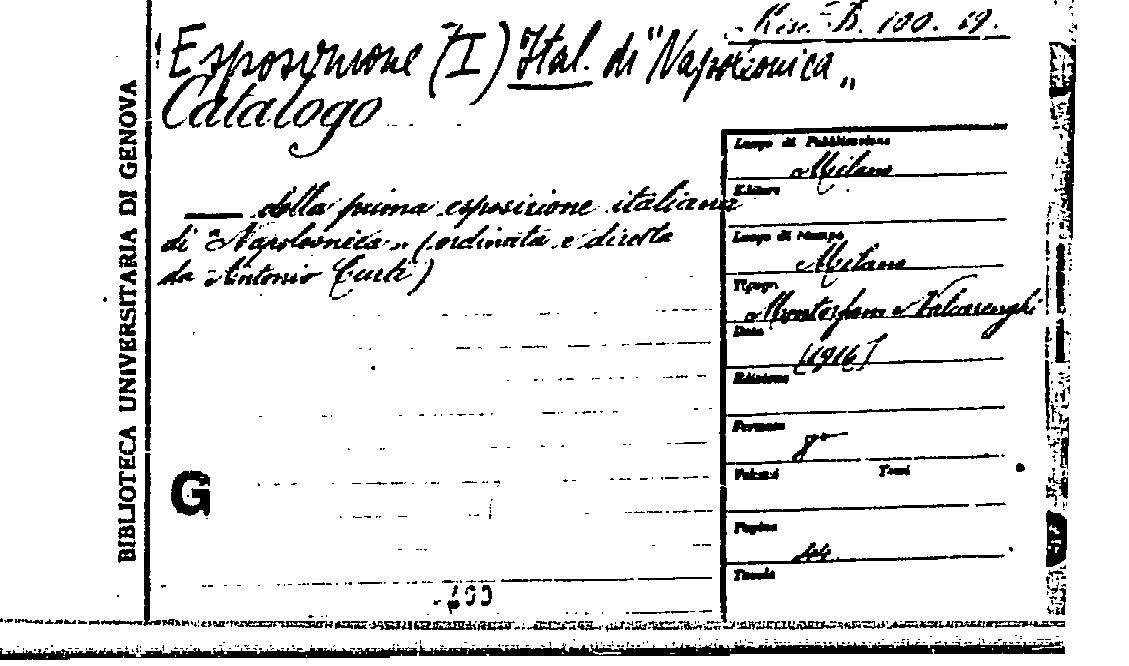 Misc. B. 100. 19.
Esposizione (I) Ital. di "Napoleonica"
Catalogo
della prima esposizione italiana
di "Napoleonica" (ordinata e diretta
da Antonio Curti)
Luogo di Pubblicazione
Milano
Editore
Luogo di stampa
Milano
Tipogr.
Montorfano e Valcarenghi
Data
[1916]
Edizione
Formato
8°
Volumi Tomi
Pagine
44
Tavole
BIBLIOTECA UNIVERSITARIA DI GENOVA
G